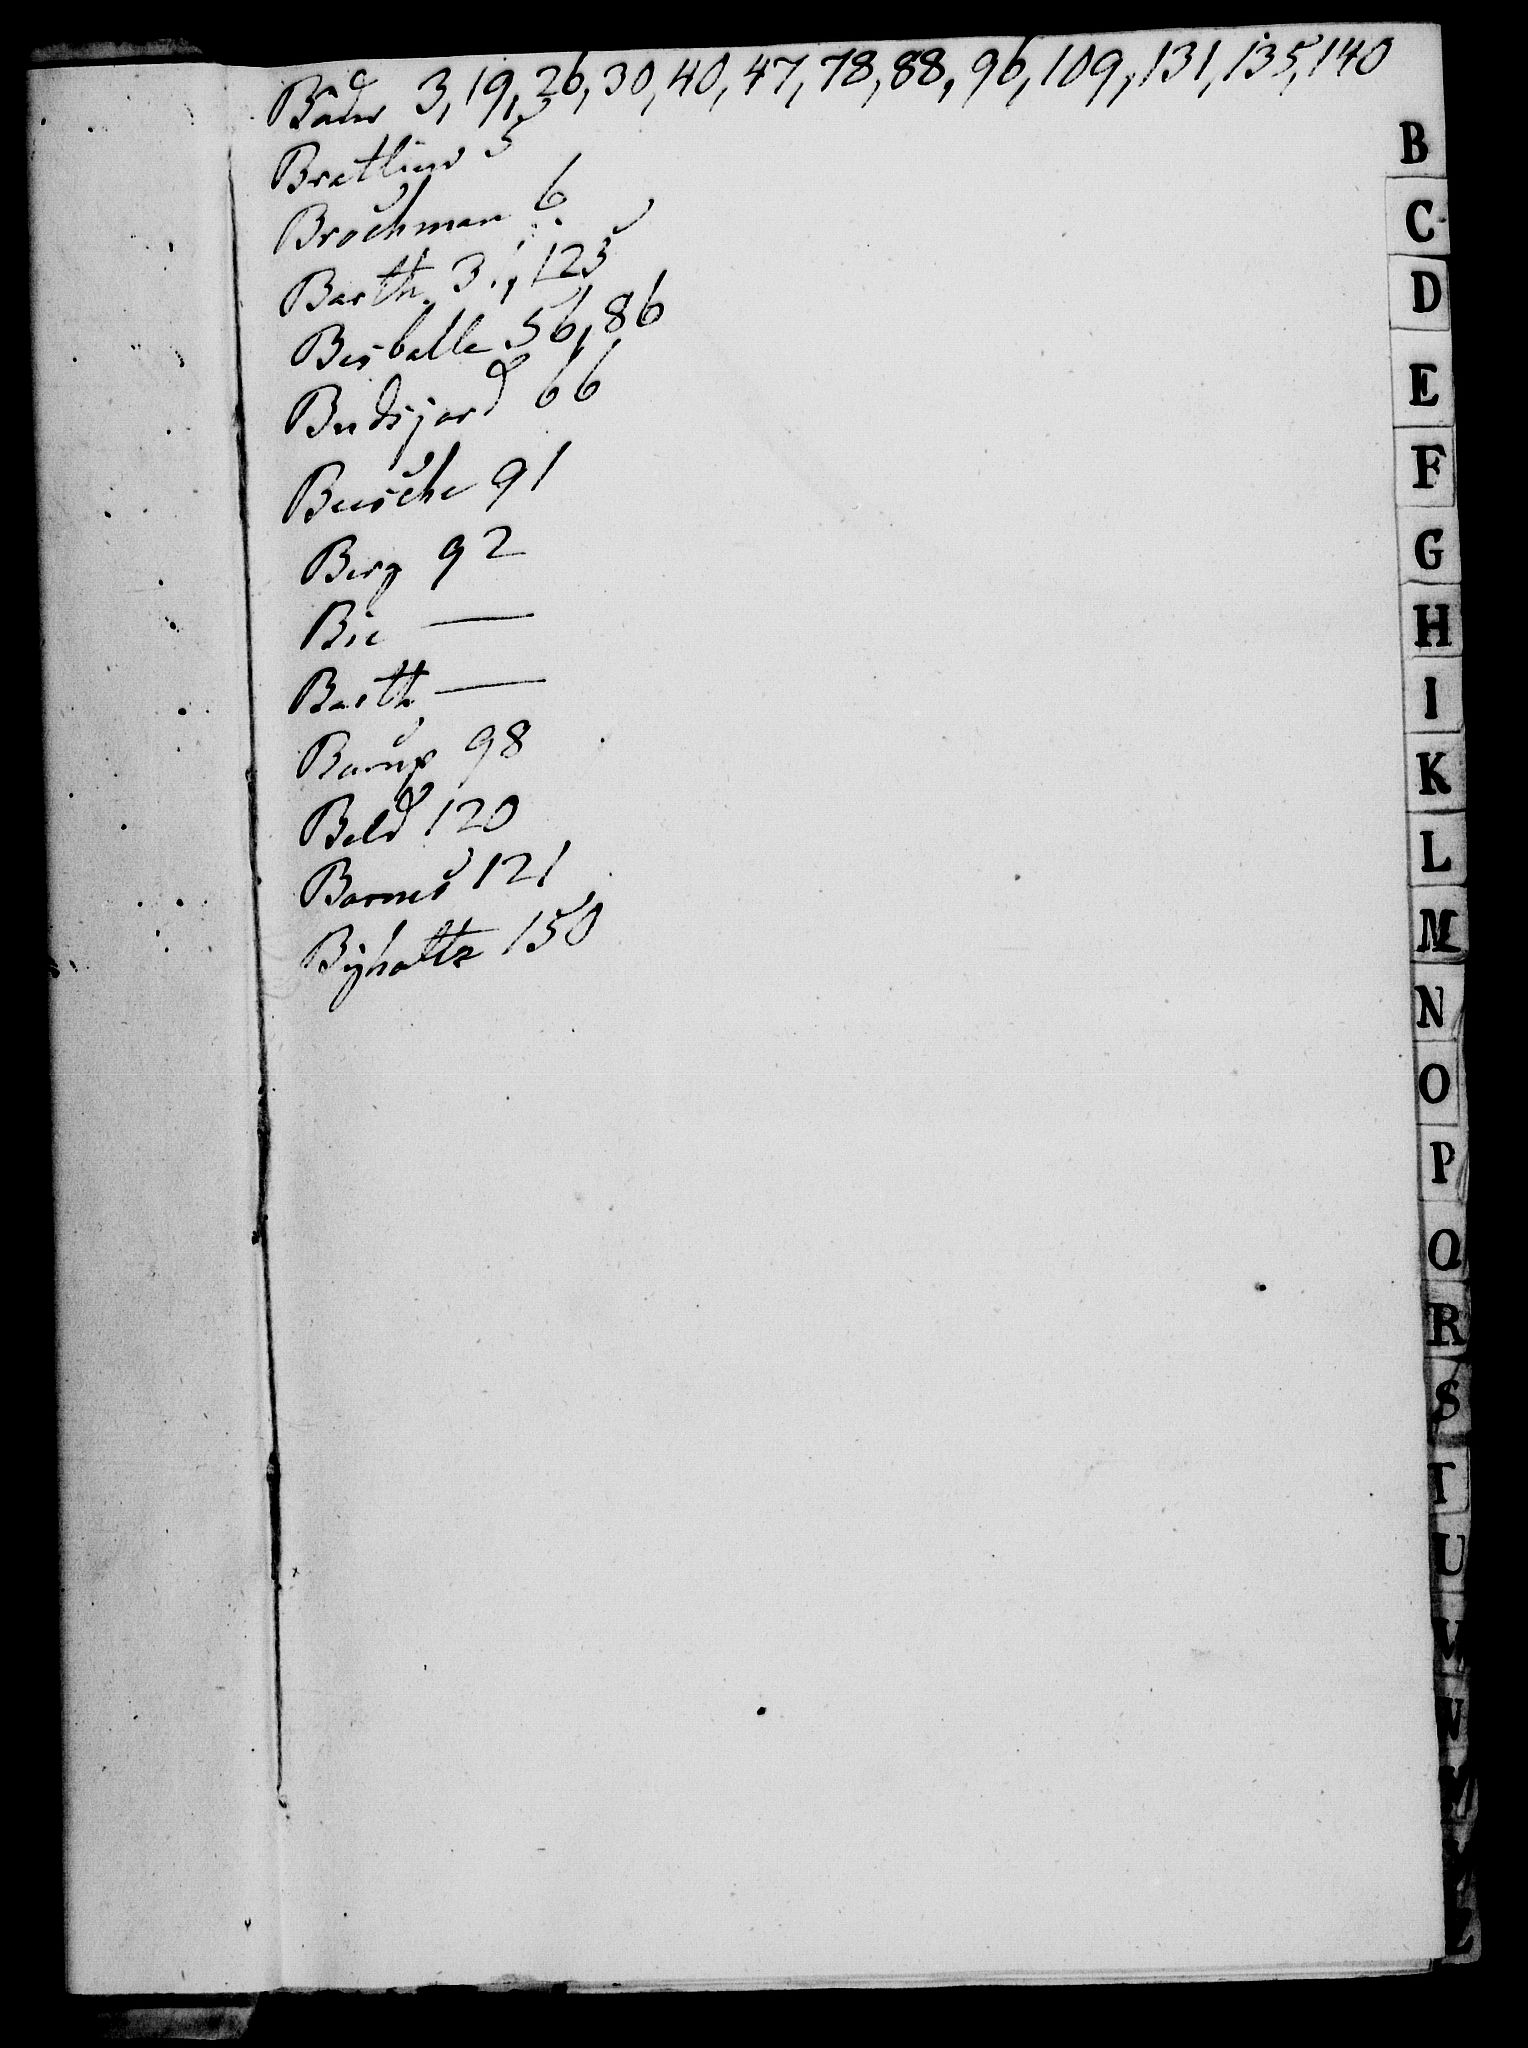 Bader 3, 19, 26, 30, 40, 47, 78, 88, 96, 109, 131, 135, 140
Bretlier 5
Brochman 6
Barth 31, 123
Bisballe 56, 86
Budsjord 66
Busche 91
Berg 92
Bie —
Barth —
Barup 98
Beld 120
Barnes 121
Byholtz 150
B
C
D
E
F
G
H
I
K
L
M
N
O
P
Q
R
S
T
U
V
W